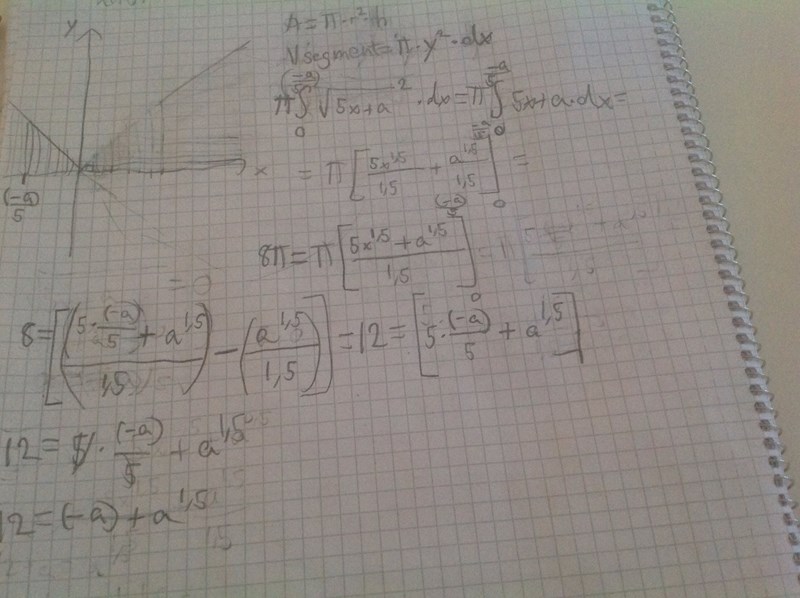 y
x
(-a)/5
A = π·r²·h
Vsegment = π·y²·dx
π ∫₀^((-a)/5) √(5x+a)² · dx = π ∫₀^(-a/5) 5x+a·dx =
= π [5x^1,5/1,5 + a^1,5/1,5]₀^(-a/5) =
8π = π [(5x^1,5 + a^1,5)/1,5]₀^((-a)/5)
8 = [((5·(-a)/5 + a^1,5)/1,5) - (a^1,5/1,5)] = 12 = [5·(-a)/5 + a^1,5]
12 = 5·(-a)/5 + a^1,5
12 = (-a) + a^1,5